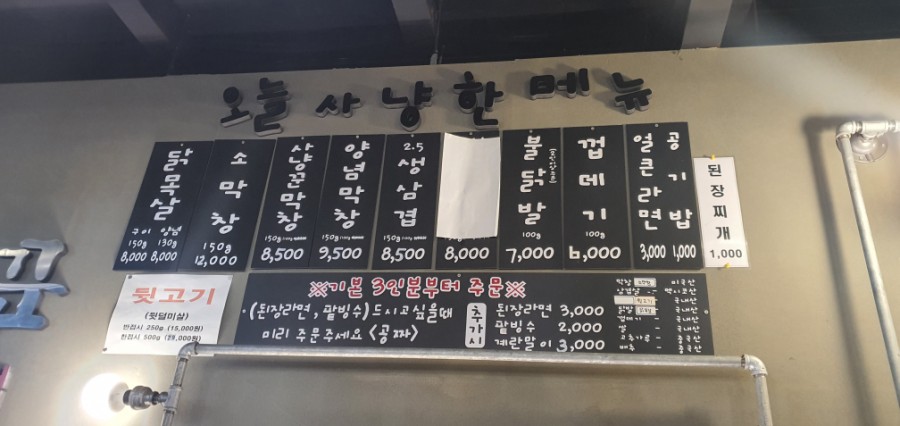 오늘 사냥한 메뉴
닭목살
구이 양념
150g 130g
8,000 8,000
소막창
150g
12,000
사냥꾼막창
150g
8,500
양념막창
150g
9,500
2.5
생삼겹
150g
8,500
8,000
불닭발
100g
7,000
껍데기
100g
6,000
얼큰라면
3,000
공기밥
1,000
된장찌개
1,000
뒷고기
(뒷덜미살)
반접시 250g (15,000원)
한접시 500g
※기본 3인분부터 주문※
(된장라면, 팥빙수) 드시고싶을때
미리 주문주세요 <공짜>
추가시
된장라면 3,000
팥빙수 2,000
계란말이 3,000